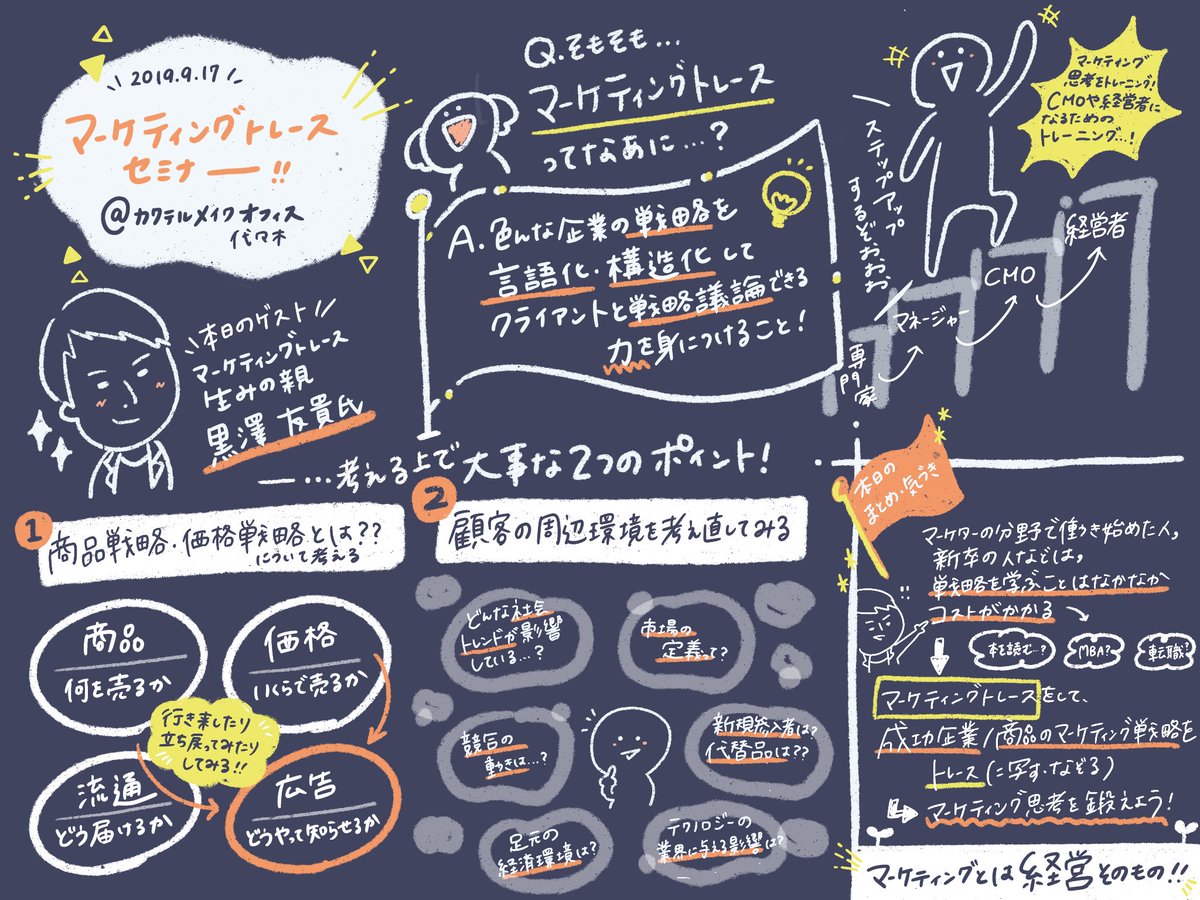 2019.9.17
マーケティングトレース
セミナー!!
@カクテルメイクオフィス
代々木
本日のゲスト
マーケティングトレース
生みの親
黒澤 友貴氏
Q.そもそも…
マーケティングトレース
ってなあに…?
A.色んな企業の戦略を
言語化・構造化して
クライアントと戦略議論できる
力を身につけること!
マーケティング
思考をトレーニング!
CMOや経営者に
なるための
トレーニング…!
ステップアップ
するぞおおお
専門家
マネージャー
CMO
経営者
…考える上で大事な2つのポイント!
1
商品戦略・価格戦略とは??
について考える
商品
何を売るか
価格
いくらで売るか
行き来したり
立ち戻ってみたり
してみる!!
流通
どう届けるか
広告
どうやって知らせるか
2
顧客の周辺環境を考え直してみる
どんな社会
トレンドが影響
している…?
市場の
定義って?
競合の
動きは…?
新規参入者は?
代替品は??
足元の
経済環境は?
テクノロジーの
業界に与える影響は?
本日の
まとめ・気づき
マーケターの分野で働き始めた人,
新卒の人などは,
戦略を学ぶことはなかなか
コストがかかる
本を読む…?
MBA?
転職?
マーケティングトレースをして、
成功企業/商品のマーケティング戦略を
トレース(に写す・なぞる)
マーケティング思考を鍛えよう!
マーケティングとは経営そのもの!!